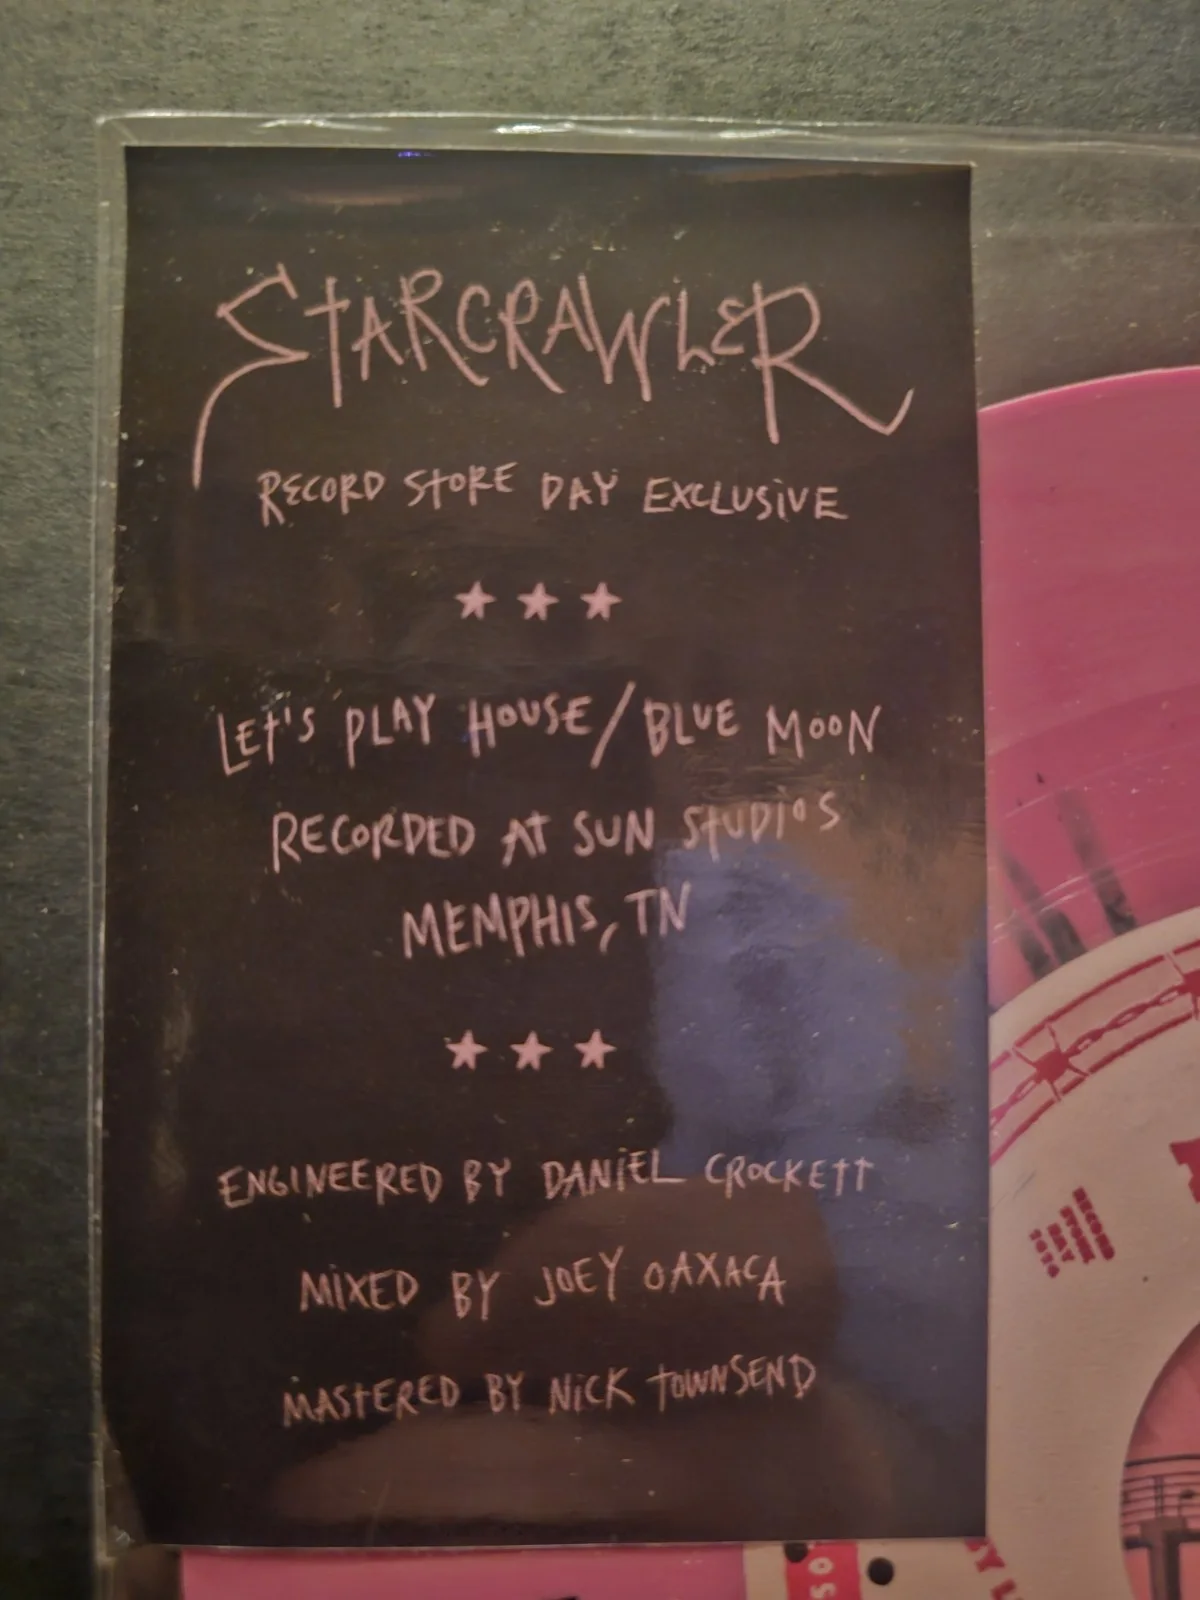 STARCRAWLER
RECORD STORE DAY EXCLUSIVE
★ ★ ★
LET'S PLAY HOUSE/BLUE MOON
RECORDED AT SUN STUDIOS
MEMPHIS, TN
★ ★ ★
ENGINEERED BY DANIEL CROCKETT
MIXED BY JOEY OAXACA
MASTERED BY NICK TOWNSEND
RECORD
STORE
DAY